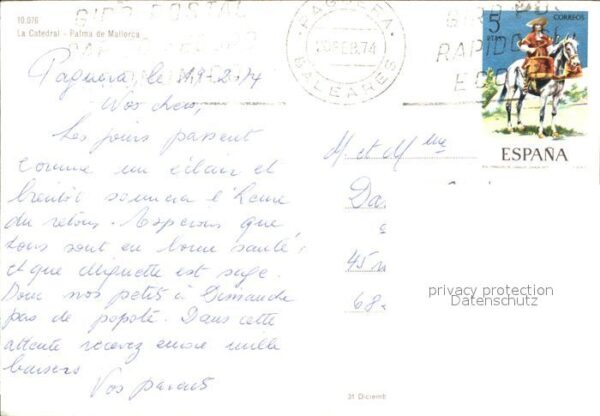 10.076
La Catedral - Palma de Mallorca
GIRO POSTAL
PAGUERA
20 FEB. 74
BALEARES
GIRO POS
RAPIDO
ECO
5
PTAS
CORREOS
ESPAÑA
Paguera le 19-2-74
Nos chers,
Les jours passent
comme un éclair et
bientôt sonnera l'heure
du retour. Espérons que
tous sont en bonne santé,
et que Miguette est sage.
Donc nos petits à Dimanche
pas de popote. Dans cette
attente recevez encore mille
baisers
Vos parents
M et Mme
Da
45
68
privacy protection
Datenschutz
21 Diciemb